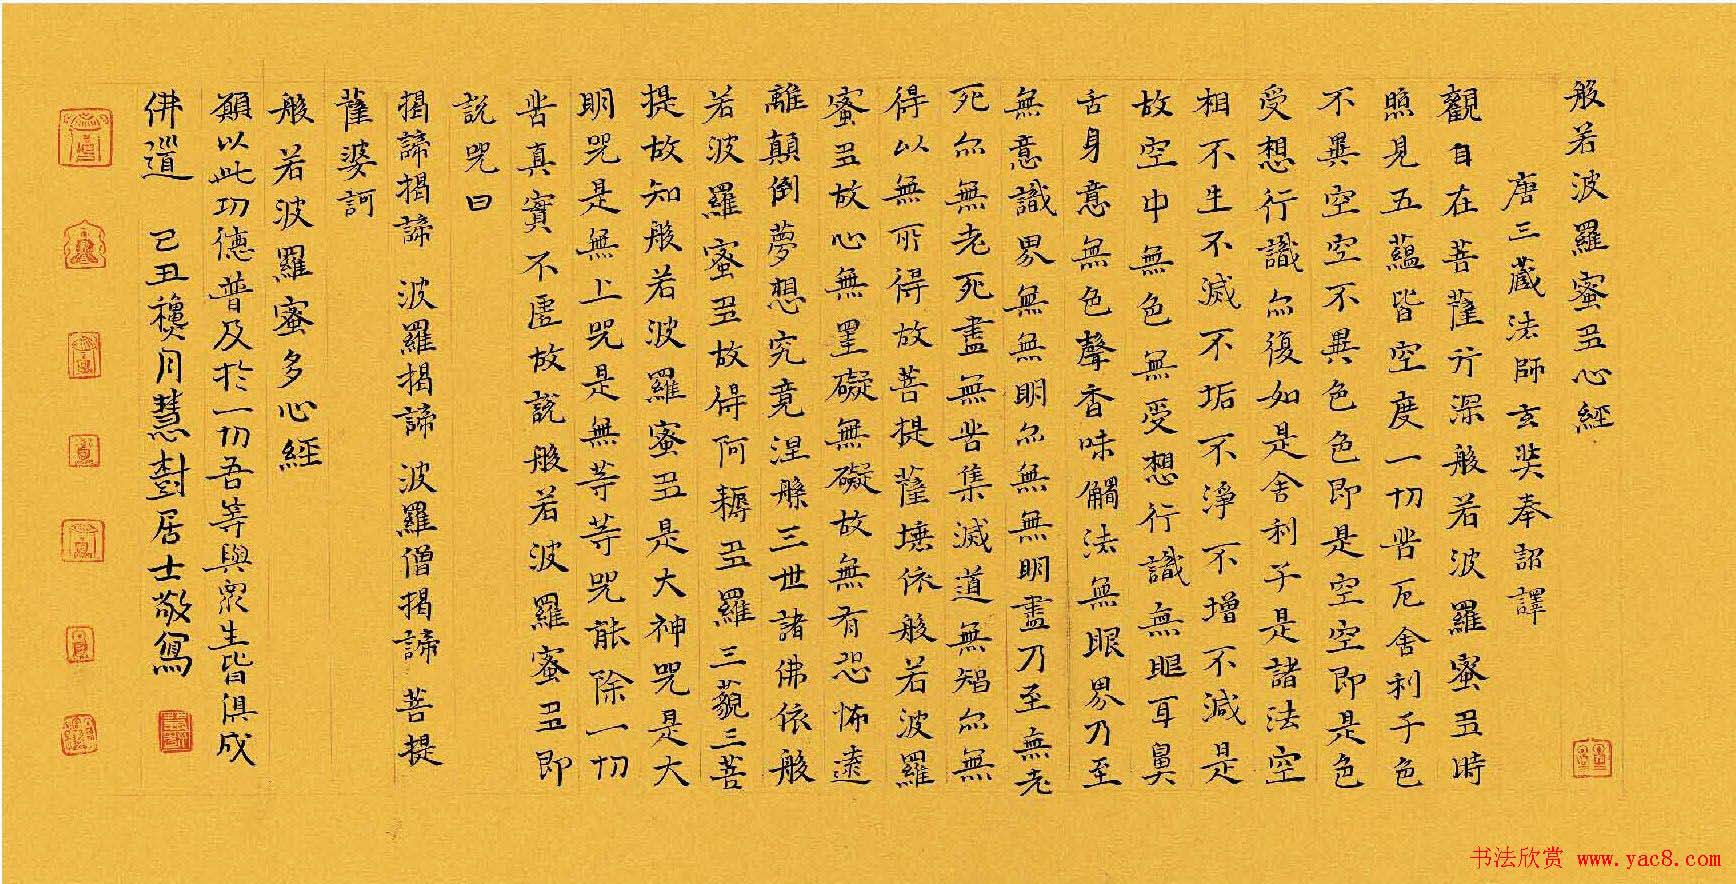 般若波羅蜜多心經
唐三藏法師玄奘奉詔譯
觀自在菩薩行深般若波羅蜜多時
照見五蘊皆空度一切苦厄舍利子色
不異空空不異色色即是空空即是色
受想行識亦復如是舍利子是諸法空
相不生不滅不垢不淨不增不減是
故空中無色無受想行識無眼耳鼻
舌身意無色聲香味觸法無眼界乃至
無意識界無無明亦無無明盡乃至無老
死亦無老死盡無苦集滅道無智亦無
得以無所得故菩提薩埵依般若波羅
蜜多故心無罣礙無礙故無有恐怖遠
離顛倒夢想究竟涅槃三世諸佛依般
若波羅蜜多故得阿耨多羅三藐三菩
提故知般若波羅蜜多是大神咒是大
明咒是無上咒是無等等咒能除一切
苦真實不虛故說般若波羅蜜多即
說咒曰
揭諦揭諦 波羅揭諦 波羅僧揭諦 菩提
薩婆訶
般若波羅蜜多心經
願以此功德普及於一切吾等與眾生皆俱成
佛道 己丑穫月慧樹居士敬寫
书法欣赏 www.yac8.com